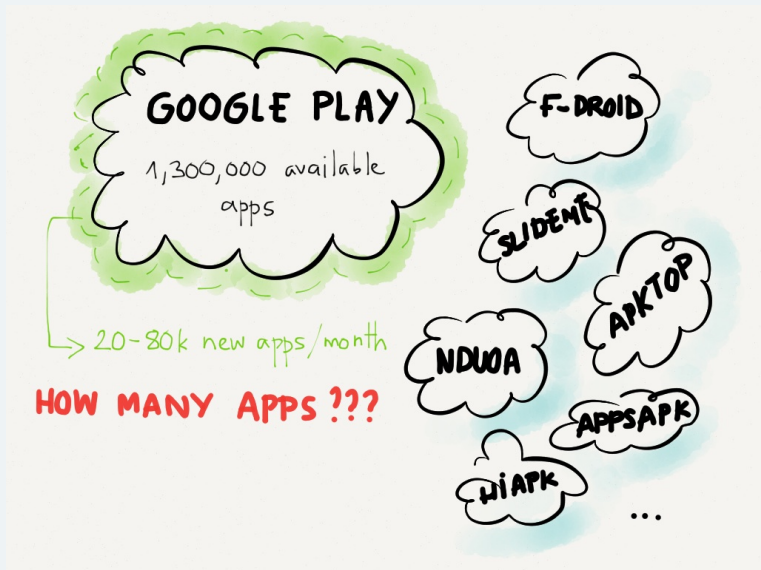 GOOGLE PLAY
1,300,000 available
apps
20-80k new apps/month
HOW MANY APPS ???
F-DROID
SLIDEME
APKTOP
NDUOA
APPSAPK
HiAPK
...